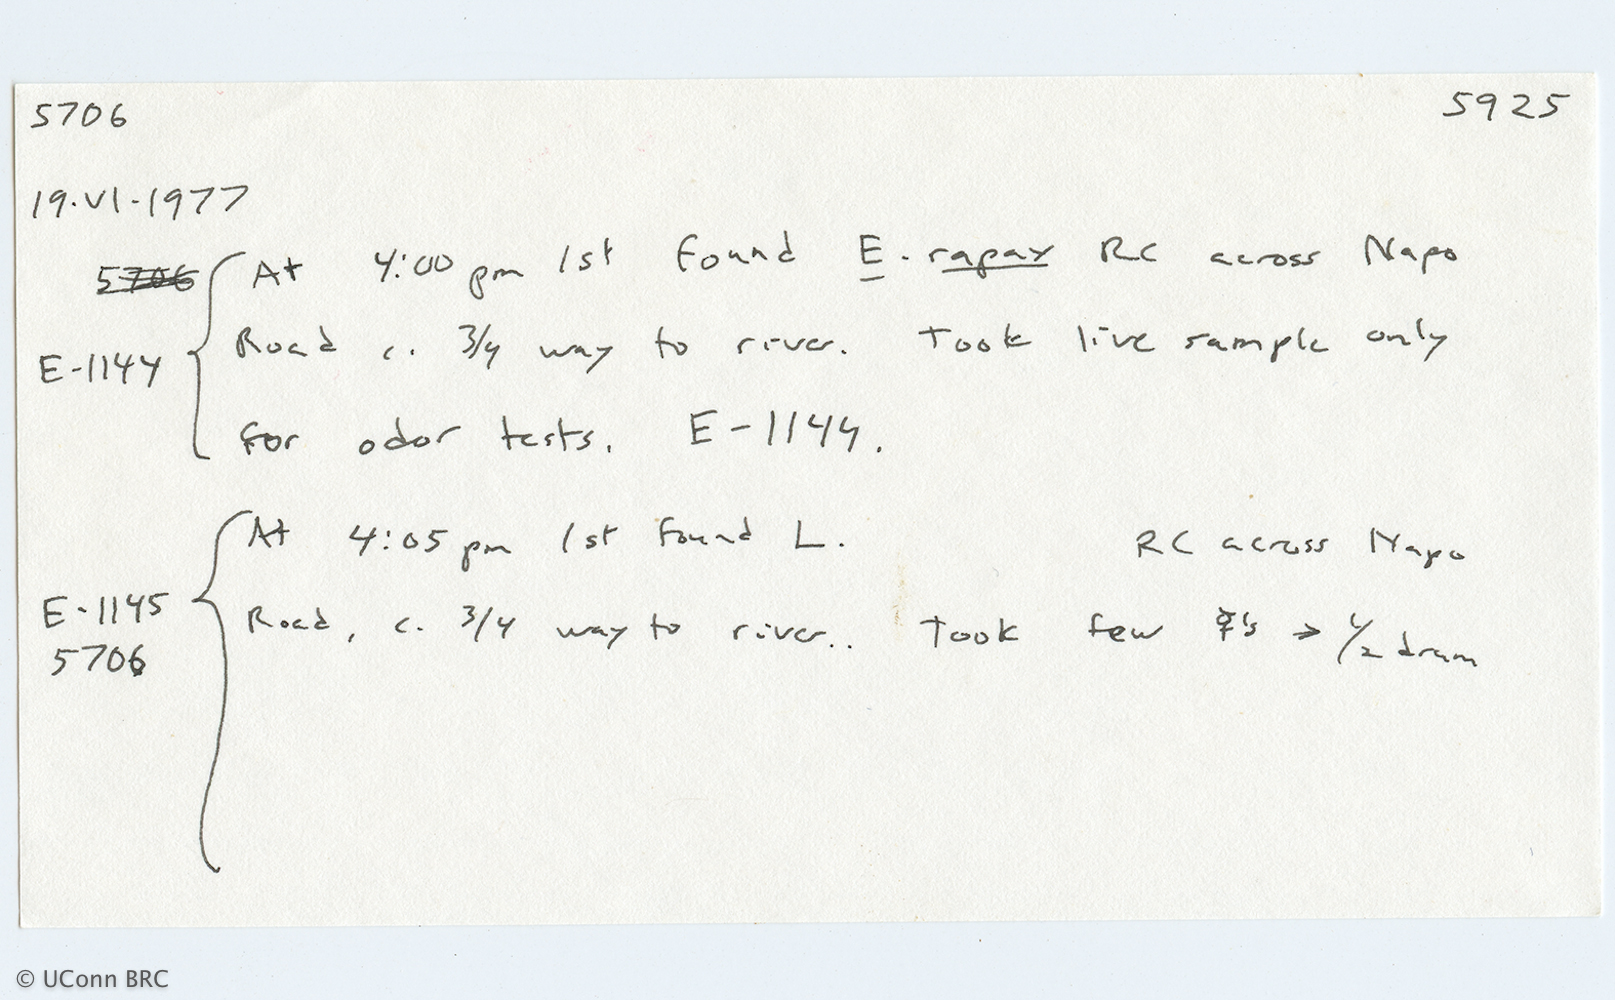 5706 5925
19·VI·1977
5706
At 4:00 pm 1st found E. rapax RC across Napo
E-1144 Road c. 3/4 way to river. Took live sample only
for odor tests. E-1144.
At 4:05 pm 1st found L. RC across Napo
E-1145 Road, c. 3/4 way to river.. Took few ☿'s → 1/2 dram
5706
© UConn BRC